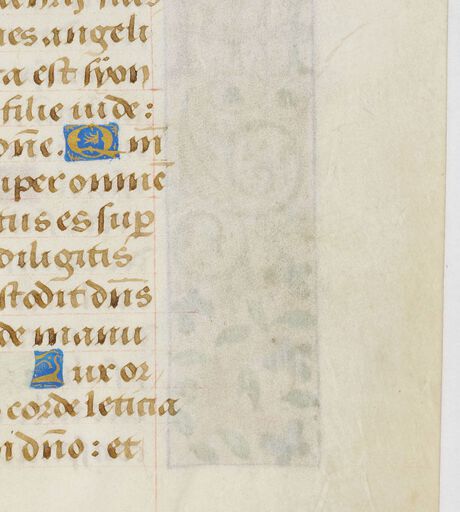 nes angeli
ra est syon
filie iude:
one. Qm
uper omne
tus es sup
diligitis
stodit dns
de manu
Lux or
corde leticia
i dno: et